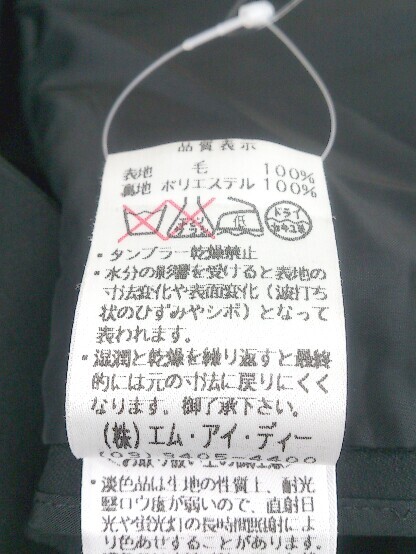 品質表示
表地 毛 100%
裏地 ポリエステル 100%
低 ドライ
・タンブラー乾燥禁止
・水分の影響を受けると表地の
寸法変化や表面変化(波打ち
状のひずみやシボ)となって
表われます。
・湿潤と乾燥を繰り返すと最終
的には元の寸法に戻りにくく
なります。御了承下さい。
(株)エム・アイ・ディー
(03)3405-4400
・淡色品は生地の性質上、耐光
堅ロウ度が弱いので、直射日
光や蛍光灯の長時間照射によ
り色あせすることがあります。